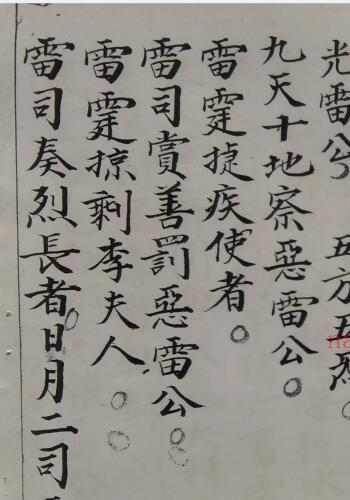 光雷公 五方五烈
九天十地察惡雷公
雷霆捉疾使者
雷司賞善罰惡雷公
雷霆掠剩李夫人
雷司奏烈長者日月二司